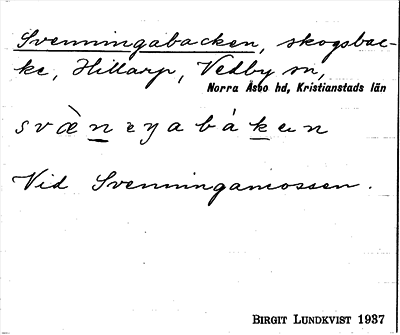 Svenningabacken, skogsbac-
ke, Hillarp, Vedby sn,
Norra Åsbo hd, Kristianstads län
Vid Svenningamossen.
BIRGIT LUNDKVIST 1937